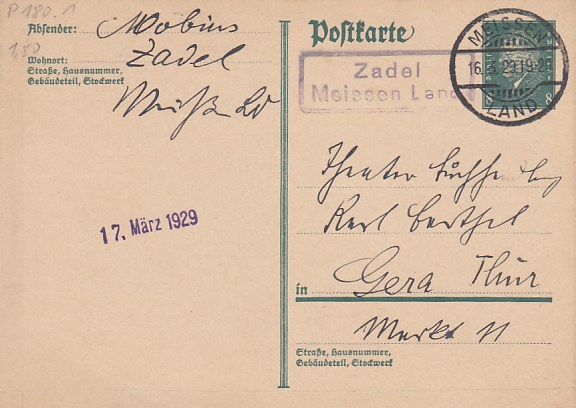 P 180.1
1,50
Absender: Mobius
Wohnort: Zadel
Straße, Hausnummer,
Gebäudeteil, Stockwerk
Postkarte
Zadel
Meissen Land
MEISSEN
16.3.29.19-20
LAND
8 8
17. März 1929
Theater
Karl Barthel
in Gera Thür
Markt 11
Straße, Hausnummer,
Gebäudeteil, Stockwerk